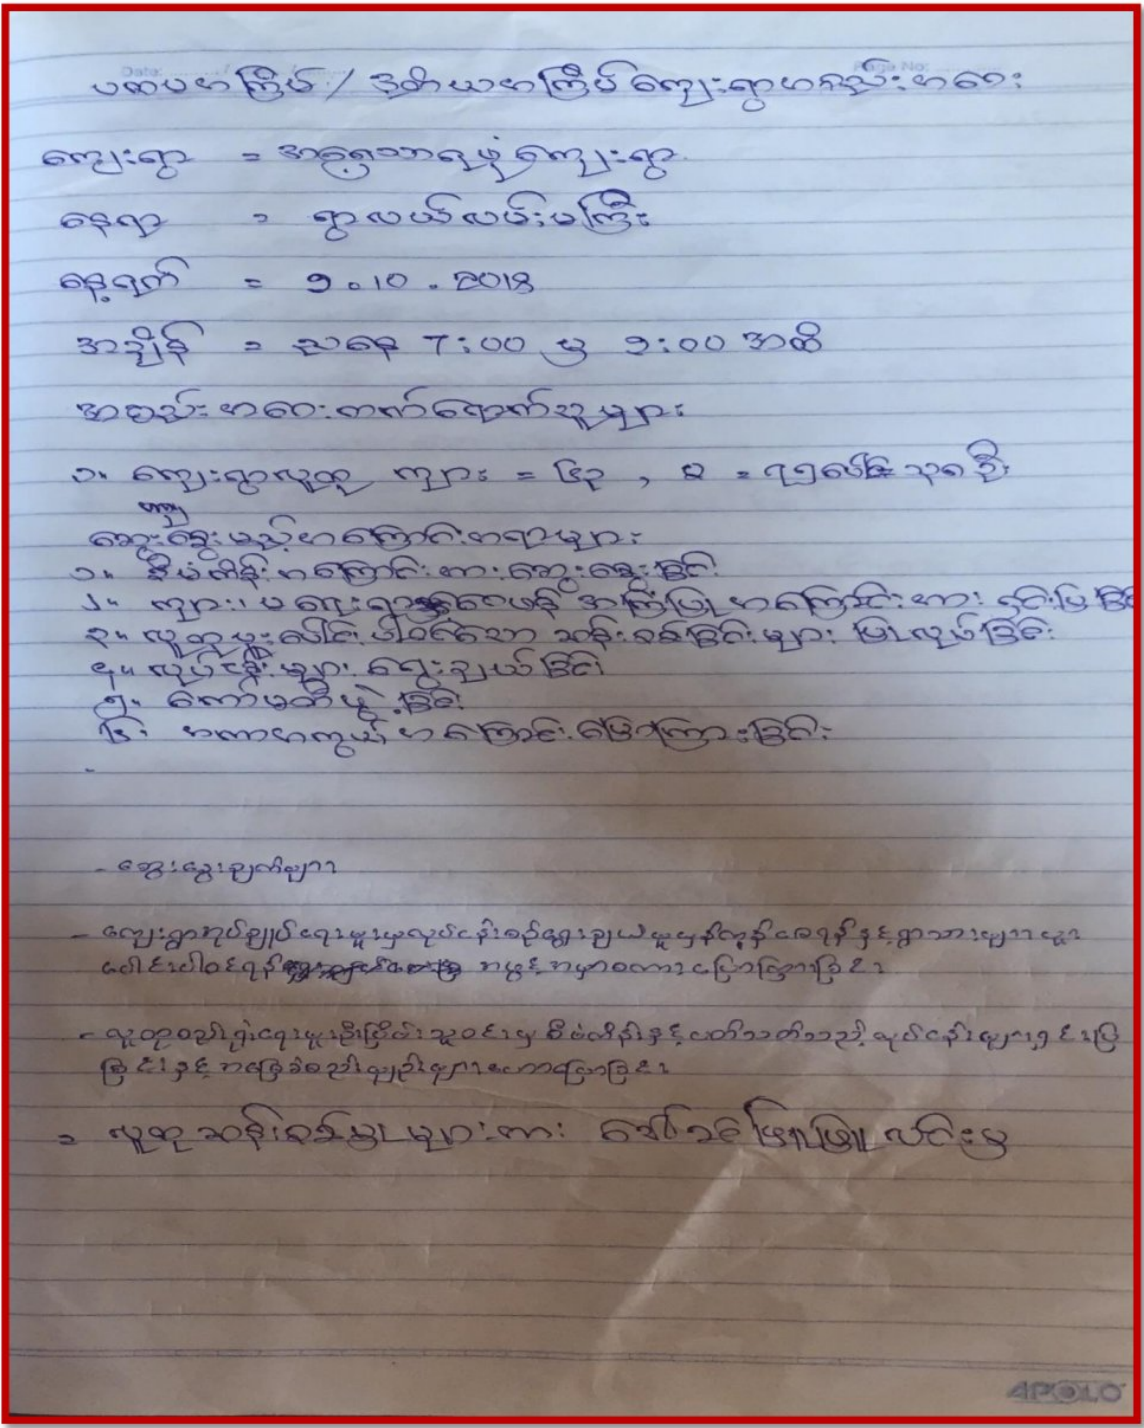 Date: Page No:
ပထမအကြိမ် / ဒုတိယအကြိမ် ကျေးရွာအစည်းအဝေး
ကျေးရွာ = ကျေးရွာ
နေရာ = ရွာလယ်လမ်းမကြီး
နေ့ရက် = 9.10.2018
အချိန် = ညနေ 7:00 မှ 9:00 အထိ
အစည်းအဝေးတက်ရောက်သူများ
၁။ ကျေးရွာလူထု ကျား = ၆၃ , မ = ၇၅ ပေါင်း ဦး
ဆွေးနွေးမည့်အကြောင်းအရာများ
၁။ စီမံကိန်းအကြောင်းအား ဆွေးနွေးခြင်း
၂။ ကျား၊ မ ရေးရာ အကြံပြု အကြောင်းအား ရှင်းပြခြင်း
၃။ လူထုပူးပေါင်းပါဝင်သော ဆန်းစစ်ခြင်းများ ပြုလုပ်ခြင်း
၄။ လုပ်ငန်းများ ရွေးချယ်ခြင်း
၅။ ကော်မတီဖွဲ့ခြင်း
၆။ အကာအကွယ်အကြောင်းပြောကြားခြင်း
- ဆွေးနွေးချက်များ
- ကျေးရွာအုပ်ချုပ်ရေးမှူးမှလုပ်ငန်းစဉ်ရွေးချယ်မှုမှန်ကန်စေရန်နှင့်ရွာသားများပူး
ပေါင်းပါဝင်ရန် အဖွင့်အမှာစကားပြောကြားခြင်း
- လူထုစည်းရုံးရေးမှူးဦးငြိမ်းသူဝင်းမှ စီမံကိန်းနှင့်ပတ်သတ်သည့်လုပ်ငန်းများရှင်းပြ
ခြင်းနှင့် အခြေခံစည်းမျဉ်းများဟောပြောခြင်း
= လူထုဆန်းစစ်မှုများအား ဒေါ်ခင်ဖြူဖြူလင်းမှ
APOLO